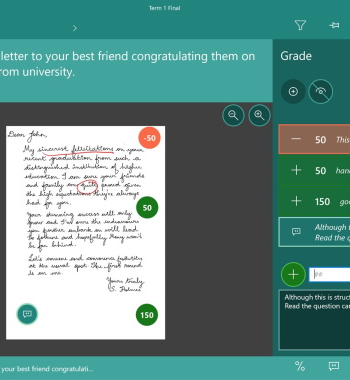 Term 1 Final
letter to your best friend congratulating them on
rom university.
Grade
Dear John,
My sincerest felicitations on your
recent graduation from such a
distinguished institution of higher
education. I am sure your friends
and family are quite proud given
the high expectations they're always
had for you.
Your stunning success will only
grow and I'm sure the endeavours
you further embark on will lead
to fortune and hopefully Many won't
be far behind.
Let's convene and commence festivities
at the usual spot. The first round
is on me.
Yours truly,
S. Holmes
-50
50
150
50 This
50 han
150 goo
Although t
Read the q
Although this is struct
Read the question car
your best friend congratulati...